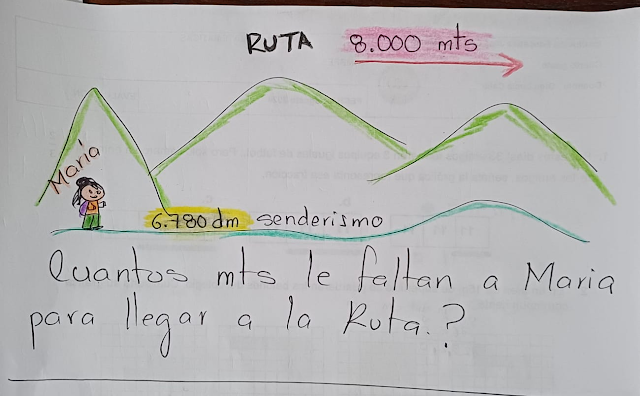 RUTA 8.000 mts
María
6.780 dm senderismo
Cuantos mts le faltan a Maria
para llegar a la Ruta.?